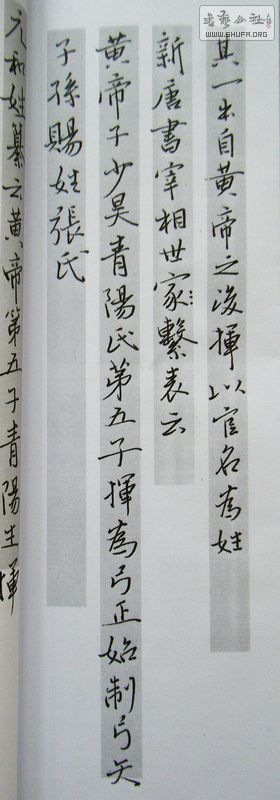 其一出自黃帝之後揮以官名為姓
新唐書宰相世家繫表云
黃帝子少昊青陽氏第五子揮為弓正始制弓矢
子孫賜姓張氏
元和姓纂云黃帝第五子青陽生揮
書藝公社
WWW.SHUFA.ORG